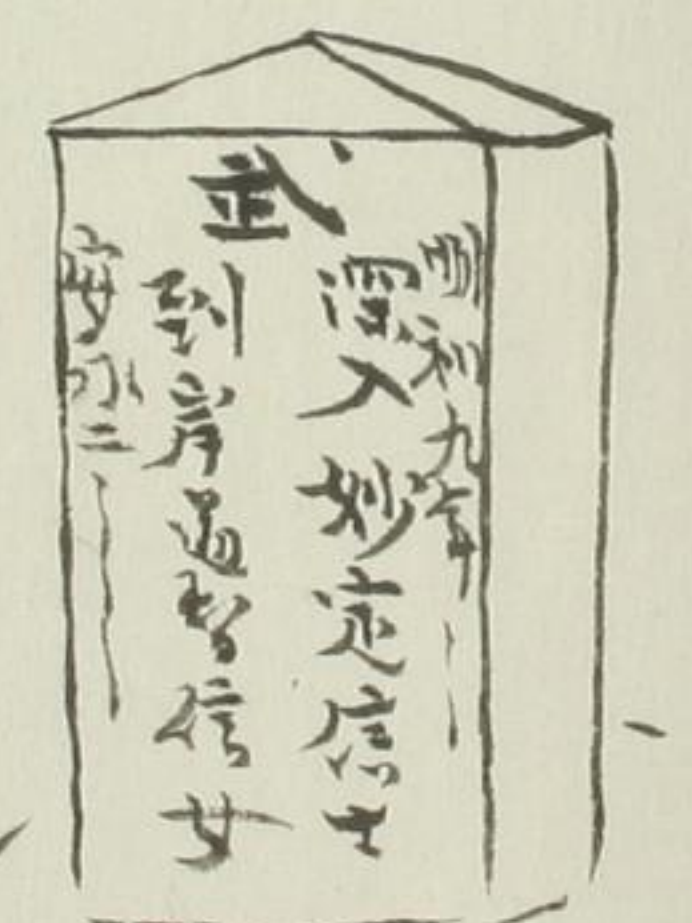 武
明和九年
深入妙定信士
到岸智信女
安永二